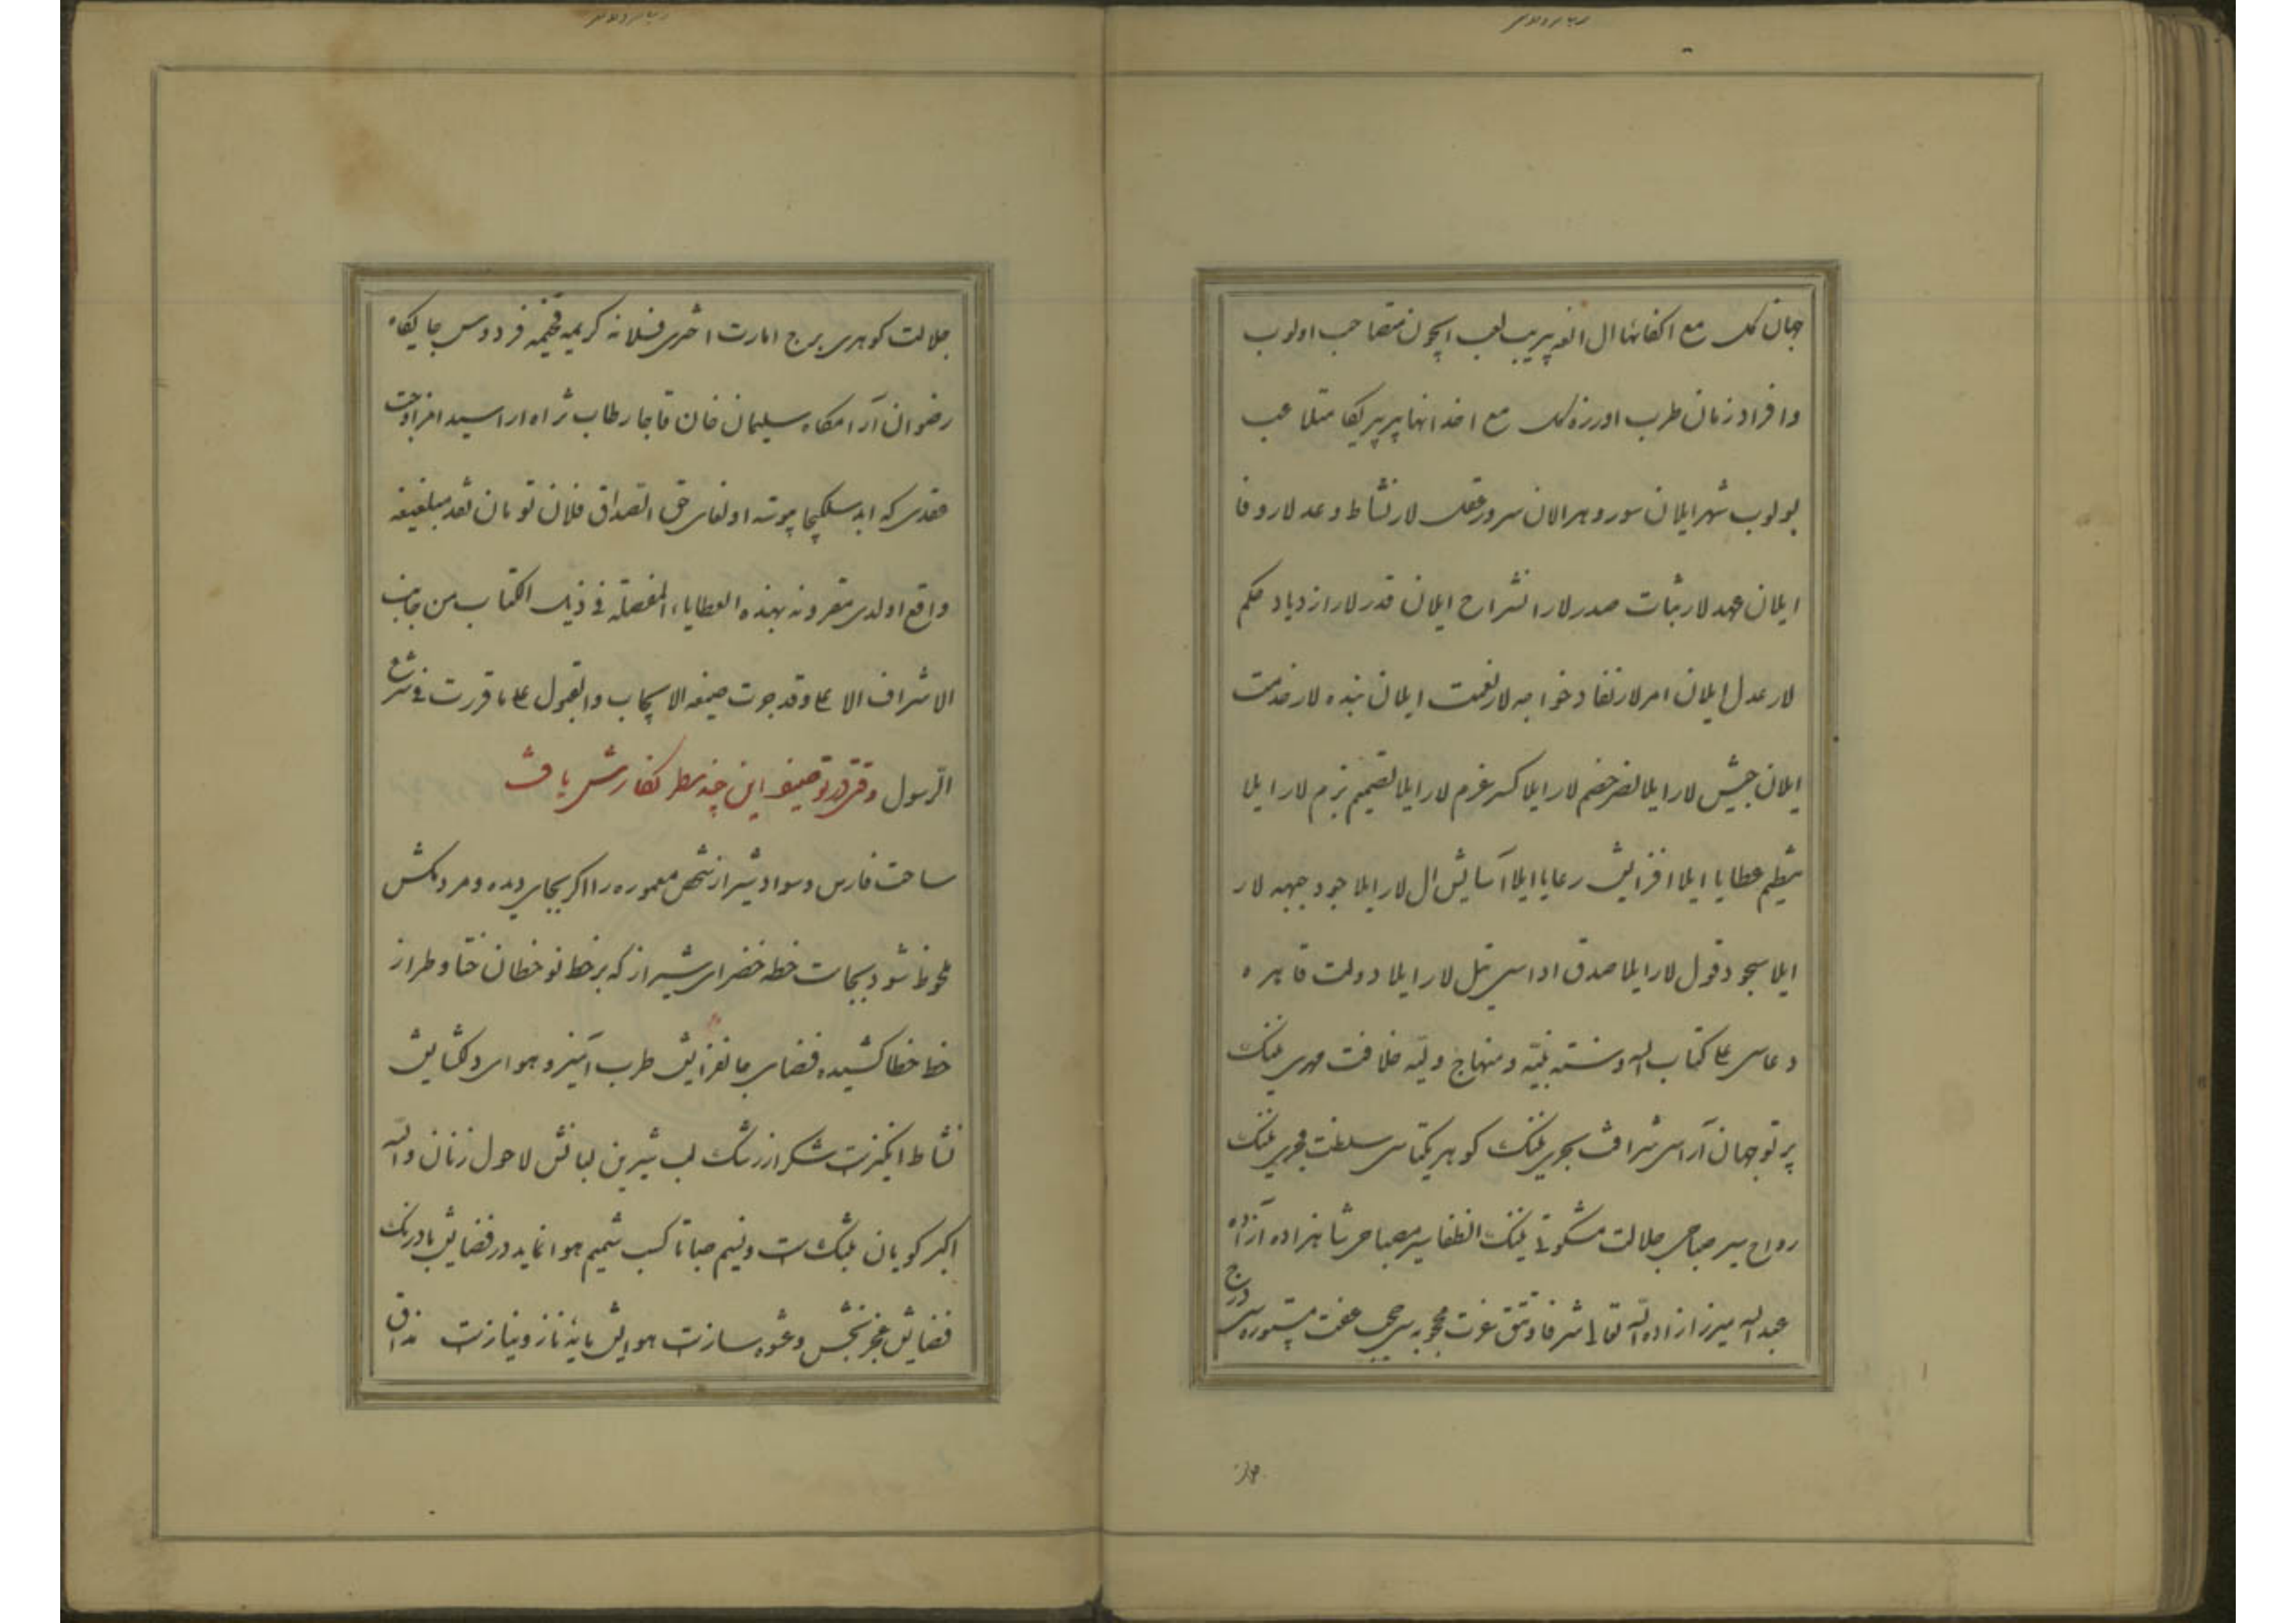 جهان کک مع اکفائها ال الفه پریب لعب ایچون متصاحب اولوب
وافراد زمان طرب اورزه کک مع اخدانها پربیریکا متلاعب
بولوب شهر ایلان سور و هر الان سرور عقد لار نشاط وعد لار وفا
ایلان عهد لار ثبات صدر لار انشراح ایلان قدر لار ازدیاد حکم
لار عدل ایلان امر لار نفاد خواجه لار نعمت ایلان بنده لار خدمت
ایلان جیش لار ایلا نصر خصم لار ایلا کسر عزم لار ایلا تصمیم بزم لار ایلا
تنظیم عطایا ایلا افزایش رعایا ایلا آسایش ال لار ایلا جود جبهه لار
ایلا سجود قول لار ایلا صدق اداسی تل لار ایلا دولت قاهره
دعاسی علی کتاب الله وسنته نبیّه ومنهاج ولیّه خلافت مهدی نینک
پرتو جهان آرای شرافت بحری نینک کوهر یکتاسی سلطنت فجری نینک
رواج صباحی جلالت مشکوتی نینک مصباحی شاهزاده آزاده
عبدالله میرزا زاده الله تعالی شرفا و تتق عزت محجوبه سی حجب عفت مستوره سی درج
جلالت کوهری برج امارت اختری فلانه کریمه فخیمه فردوس جایکاه
رضوان آرامکاه سلیمان خان قاجار طاب ثراه ارا سیدا
عقدی که ابد پیوسته اولغای حق الصداق فلان تومان نقد مبلغیغه
واقع اولدی مقرونه بهذه العطایاء المفصله فی ذیل الکتاب من جانب
الاشراف الاعلی وقد جرت صیغه الایجاب والقبول علی ما قررت فی شرع
الرسول در توصیف این چند سطر نکارش یافت
ساحت فارس وسواد شیراز شخص معموره را اکر بجای دیده ومردمکش
ملحوظ شود بجاست خطه خضرای شیراز که بر خط نو خطان ختا وطراز
خط خطا کشیده فضای جانفزایش طرب آمیز وهوای دلکشایش
نشاط انکیزست شکر از رشک لب شیرین لبانش لاحول زنان والله
اکبر کویان ونسیم صبا تا کسب شمیم هوا نماید در فضایش بادرنک
فضایش عجز بخش وعشوه سازست هوایش مایه ناز ونیازست مذاق